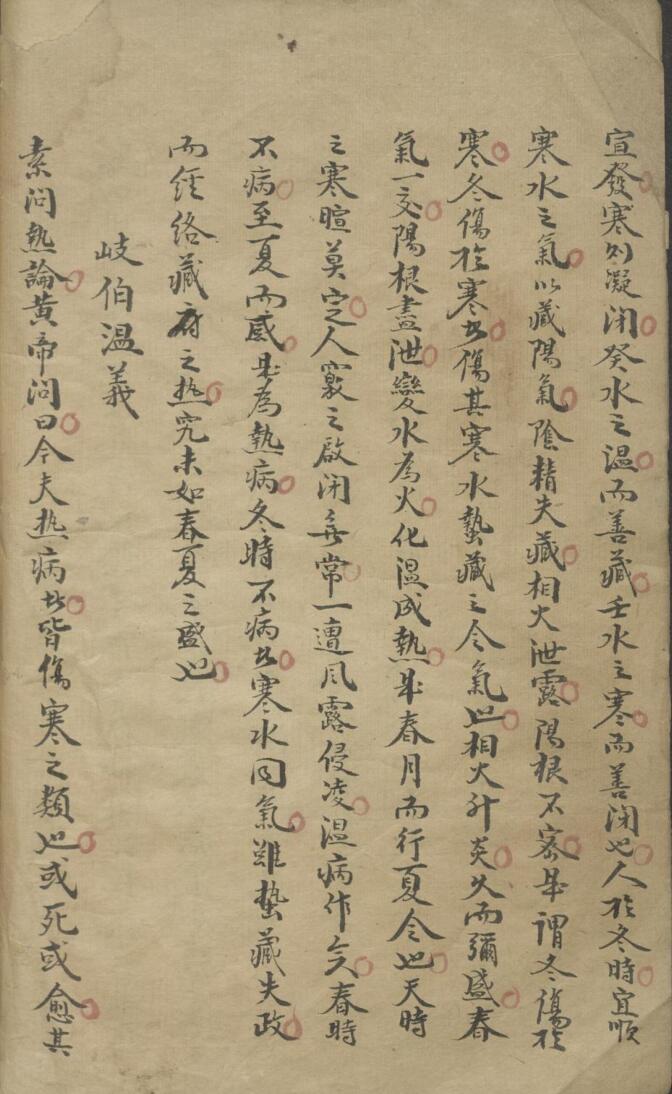 宜發寒則凝閉癸水之温而善藏壬水之寒而善閉也人於冬時宜順
寒水之氣以藏陽氣陰精失藏相火泄露陽根不密是謂冬傷於
寒冬傷於寒者傷其寒水蟄藏之令氣也相火升炎久而彌盛春
氣一交陽根盡泄變水為火化温成熱是春月而行夏令也天時
之寒暄莫定人竅之啟閉無常一遭風露侵凌温病作矣春時
不病至夏而感是為熱病冬時不病者寒水同氣雖蟄藏失政
而經絡藏府之热究未如春夏之盛也
岐伯温義
素问熱論黃帝问曰今夫热病者皆傷寒之類也或死或愈其